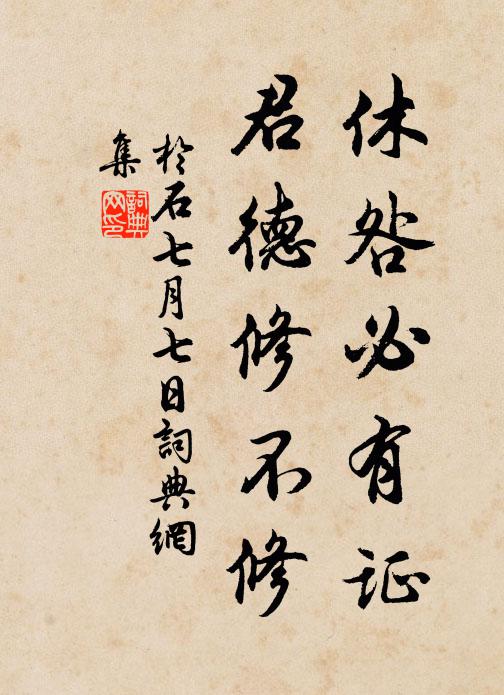 休咎必有证
君德修不修
於石七月七日詞典網
集
詞典网印